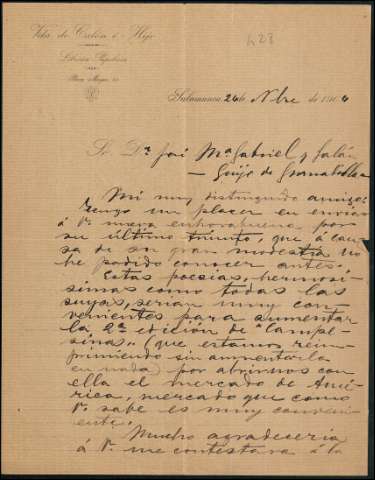 Vda. de Calón é Hijo
Librería-Papelería
Plaza Mayor,
428
Salamanca 26 de Nbre de 1904
Sr. Dn José Mª Gabriel y Galán
— Guijo de Granadilla
Mi muy distinguido amigo:
tengo un placer en enviar
á V. nueva enhorabuena por
su último triunfo, que á cau-
sa de su gran modestia no
he podido conocer antes.
Estas poesías, hermosí-
simas como todas las
suyas, serían muy con-
venientes para aumentar
la 2ª edición de "Campe-
sinas" (que estamos reim-
primiendo sin aumentarla
en nada) por abrirnos con
ella el mercado de Amé-
rica, mercado que como
V. sabe es muy conveni-
ente.
Mucho agradecería
á V. me contestara á la